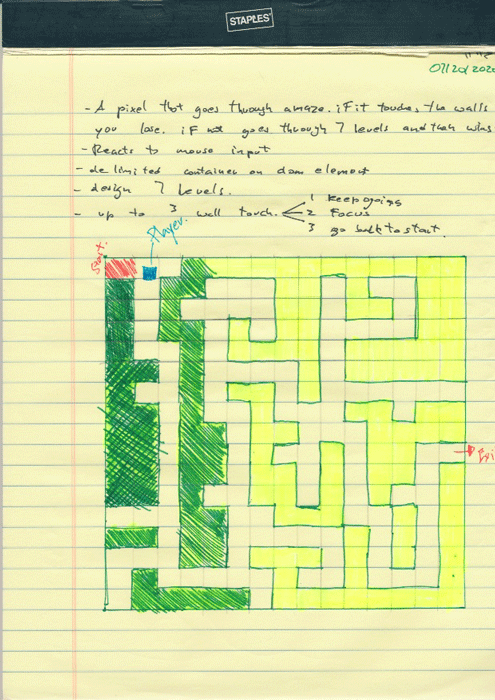 STAPLES
07/20/202
- A pixel that goes through a maze. if it touches the walls
you lose. if not goes through 7 levels and then wins
- Reacts to mouse input
- delimited container on dom element
- design 7 levels.
- up to 3 wall touch.
1 keep going
2 Focus
3 go back to start.
Player.
Start.